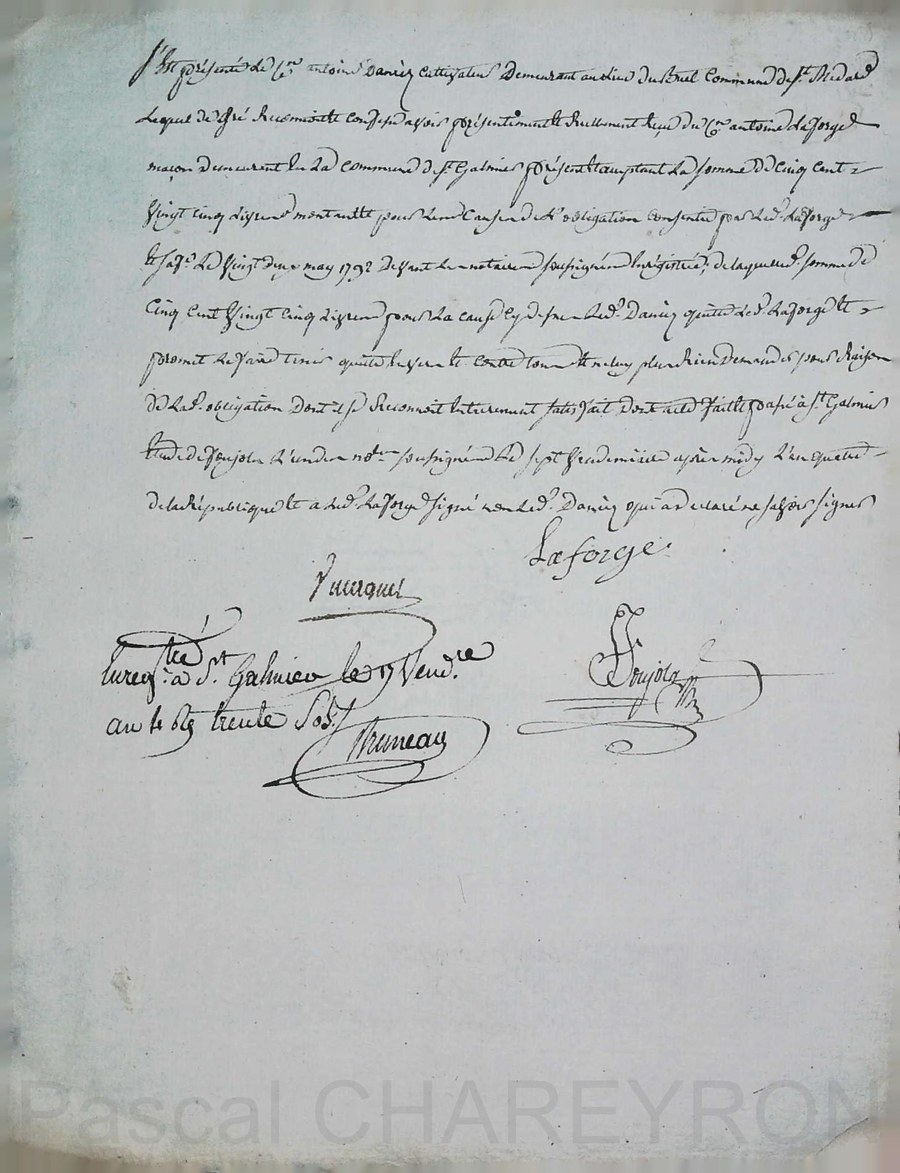 S'est présenté le Cen antoine Dancy cultivateur Demeurant au lieu du commune de St. Médard
Lequel de gré Reconnoit et Confesse avoir présentement et Réellement reçu du Cen antoine Laforge
maçon demeurant en La commune de St. Galmier présent acceptant La somme de Cinq cent
vingt cinq Livres montant pour Les causes de L'obligation consentie par Led. Laforge
et sa fe. Le vingt deux may 1792 devant Les notaires soussignés Enregistrée, de laquelle somme de
Cinq Cent vingt cinq Livres pour La cause cy dessus Led. Dancy quitte Led. Laforge et
promet Le faire tenir quitte envers et contre tous et ne luy plus Rien Demander pour Raison
de Lad. obligation Dont il se Reconnoit Entierement satisfait Dont acte fait et passé à St Galmier
Etude de Poujola L'un des notres soussignés Le sept vendemiaire après midy L'an quatre
de la République et a Led. Laforge signé non Led. Dancy qui a declaré ne savoir signer
Laforge
Enregtré à St Galmier le 17 Vendre
an 4 trente Sols
Poujola
Bruneau
Pascal CHAREYRON